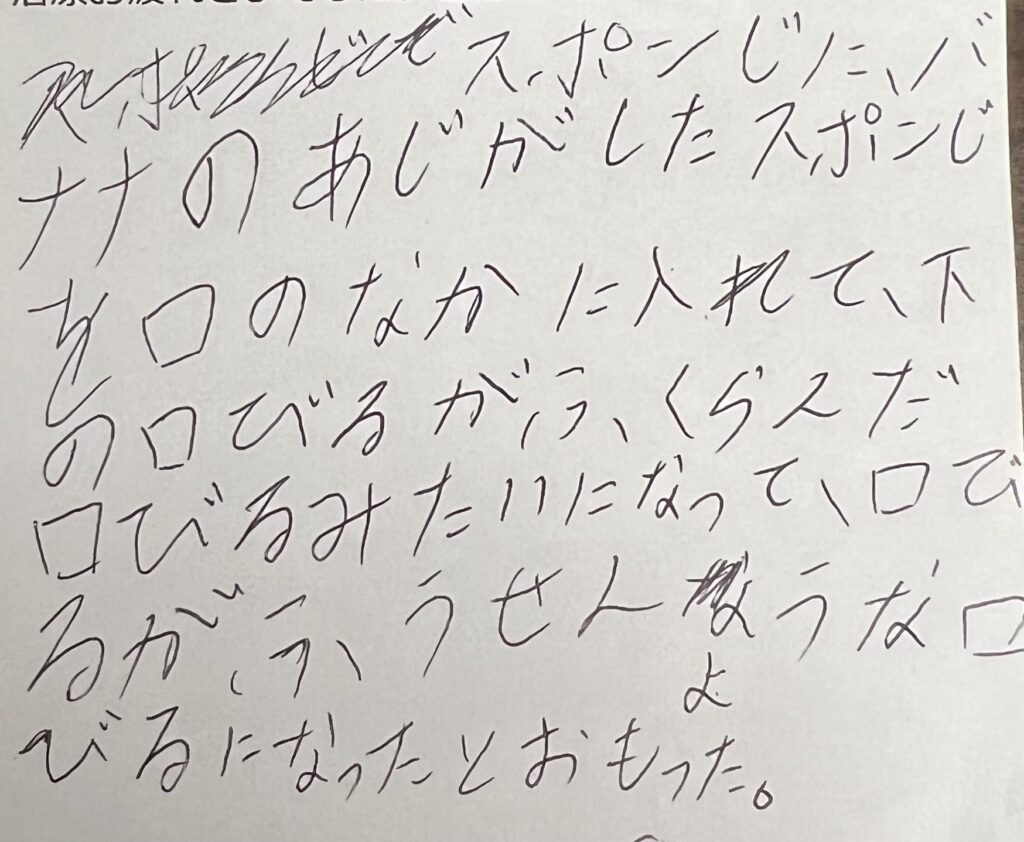 スポンじに、バ
ナナのあじがしたスポンじ
を口のなかに入れて、下
の口びるが、ふくらんだ
口びるみたいになって、口び
るが、ふうせんようなロ
びるになったとおもった。